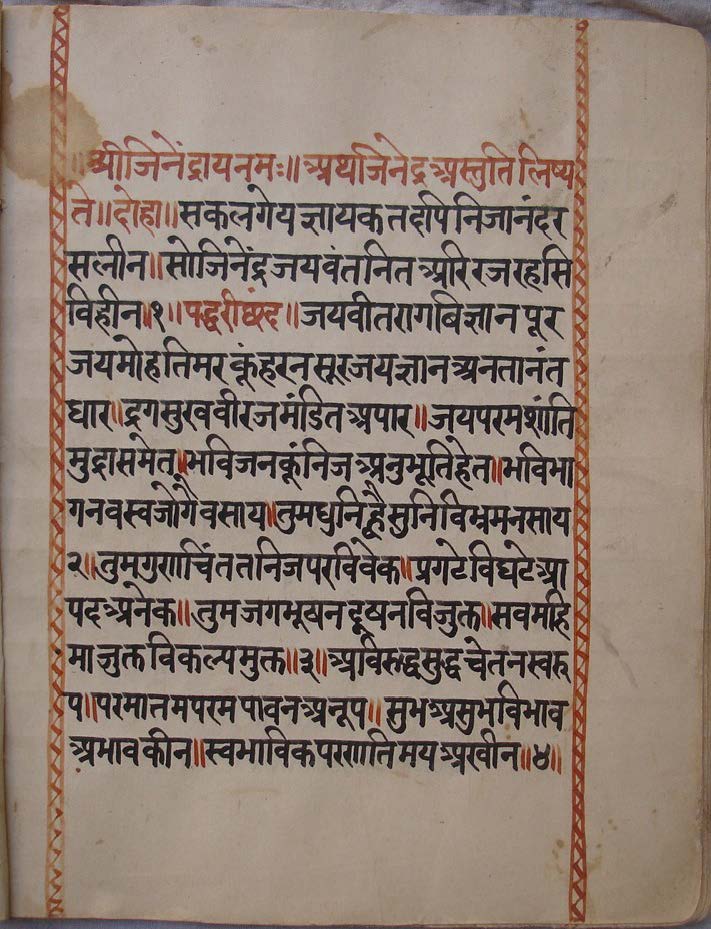 ॥श्रीजिनेंद्रायनमः॥अथजिनेद्रअस्तुतिलिष्य
ते॥दोहा॥सकलगेयज्ञायकतदपिनिजानंदर
सलीन॥सोजिनेंद्रजयवंतनितअरिरजरहसि
विहीन॥१॥पद्धरीछंद॥जयवीतरागबिज्ञानपूर
जयमोहतिमरकूंहरनसूरजयज्ञानअनतानंत
धार॥द्रगसुखवीरजमंडितअपार॥जयपरमशांति
मुद्रासमेत॥भविजनकूंनिजअनुभूतिहेत॥भविभा
गनवस्वजोगैवसाय॥तुमधुनिह्वैसुनिविभ्रमनसाय
२॥तुमगुणचिंततनिजपरविवेक॥प्रगटेविघटेआ
पदअनेक॥तुमजगभूषनदूषनविजुक्त॥सवमहि
माजुक्तविकल्पमुक्त॥३॥अविरुद्धसुद्धचेतनस्वरू
प॥परमातमपरमपावनअनूप॥सुभअसुभविभाव
अभावकीन॥स्वभाविकपरणतिमयअखीन॥४॥